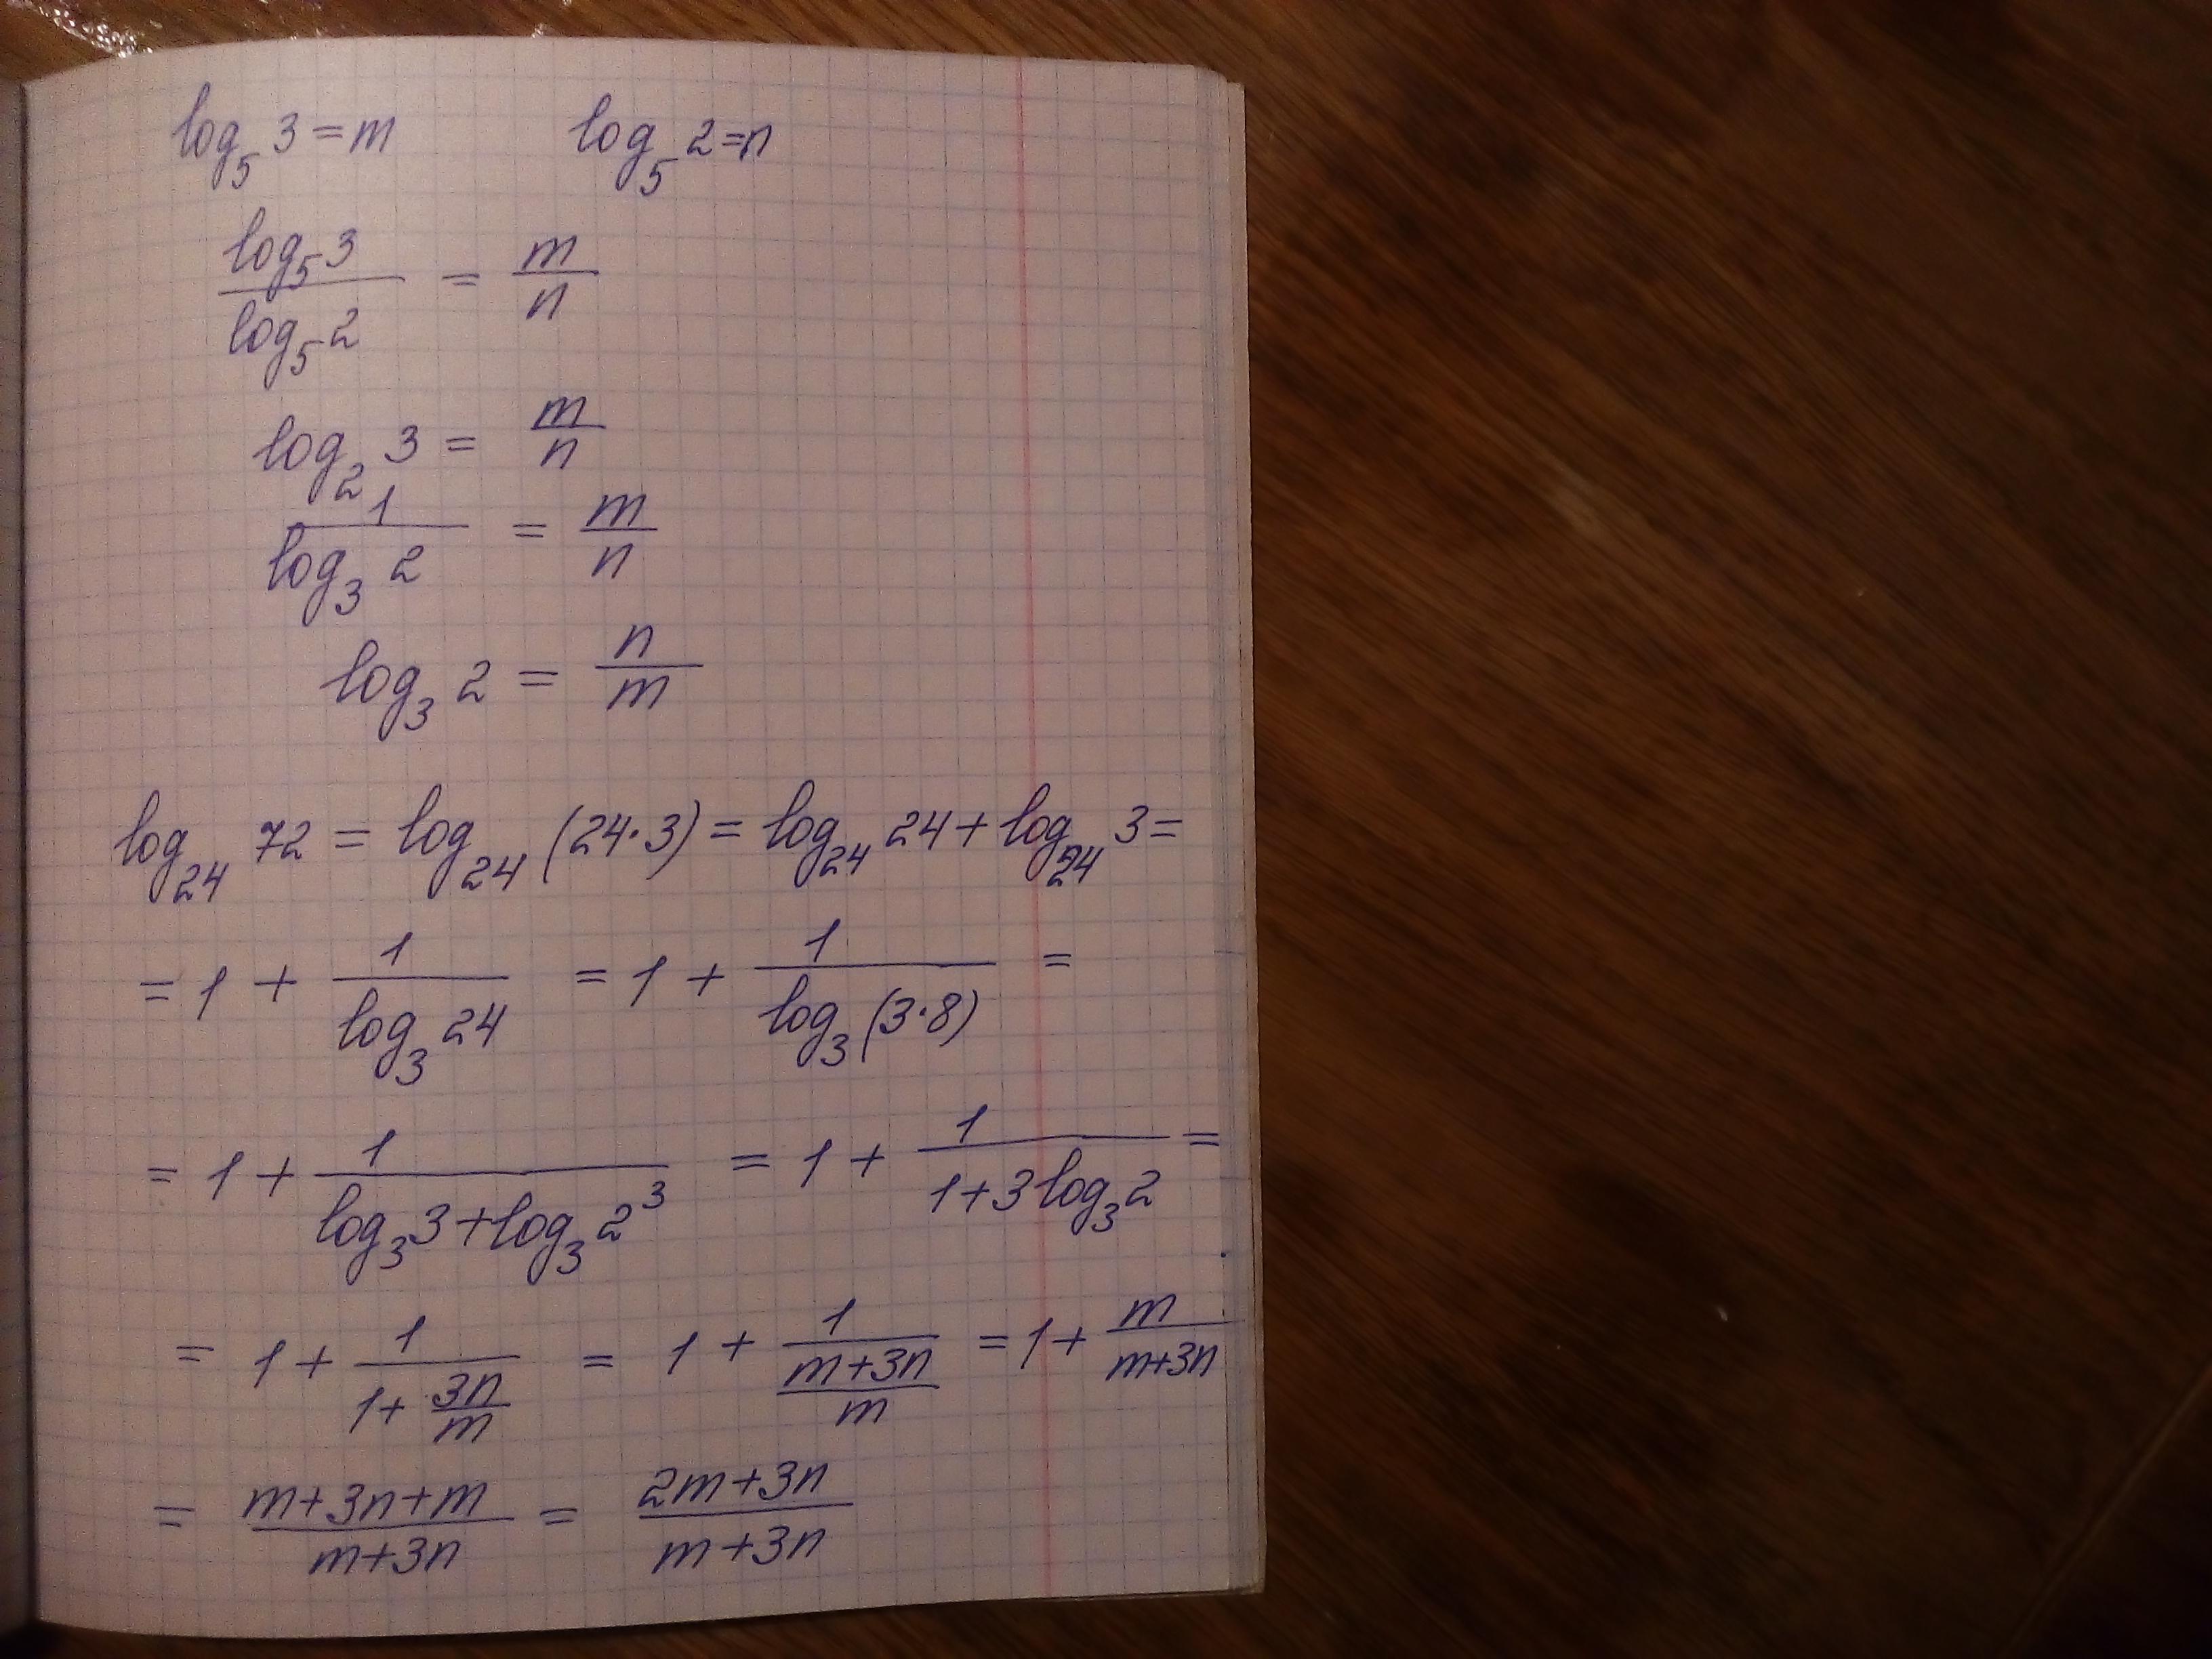 log₅ 3 = m log₅ 2 = n
log₅ 3 / log₅ 2 = m / n
log₂ 3 = m / n
1 / log₃ 2 = m / n
log₃ 2 = n / m
log₂₄ 72 = log₂₄ (24·3) = log₂₄ 24 + log₂₄ 3 =
= 1 + 1 / log₃ 24 = 1 + 1 / log₃ (3·8) =
= 1 + 1 / (log₃ 3 + log₃ 2³) = 1 + 1 / (1 + 3 log₃ 2) =
= 1 + 1 / (1 + 3n/m) = 1 + 1 / ((m+3n)/m) = 1 + m / (m+3n)
= (m+3n+m) / (m+3n) = (2m+3n) / (m+3n)